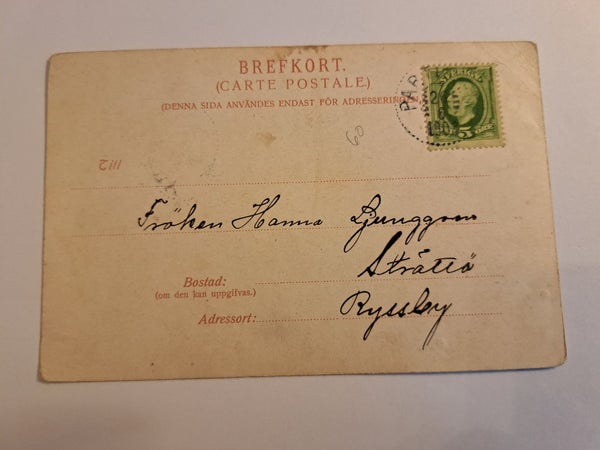 BREFKORT.
(CARTE POSTALE.)
(DENNA SIDA ANVÄNDES ENDAST FÖR ADRESSERINGEN.)
SVERIGE
5 ÖRE
60
Fröken Hanna Ljunggren
Bostad:
(om den kan uppgifvas.)
Adressort:
Ryssby